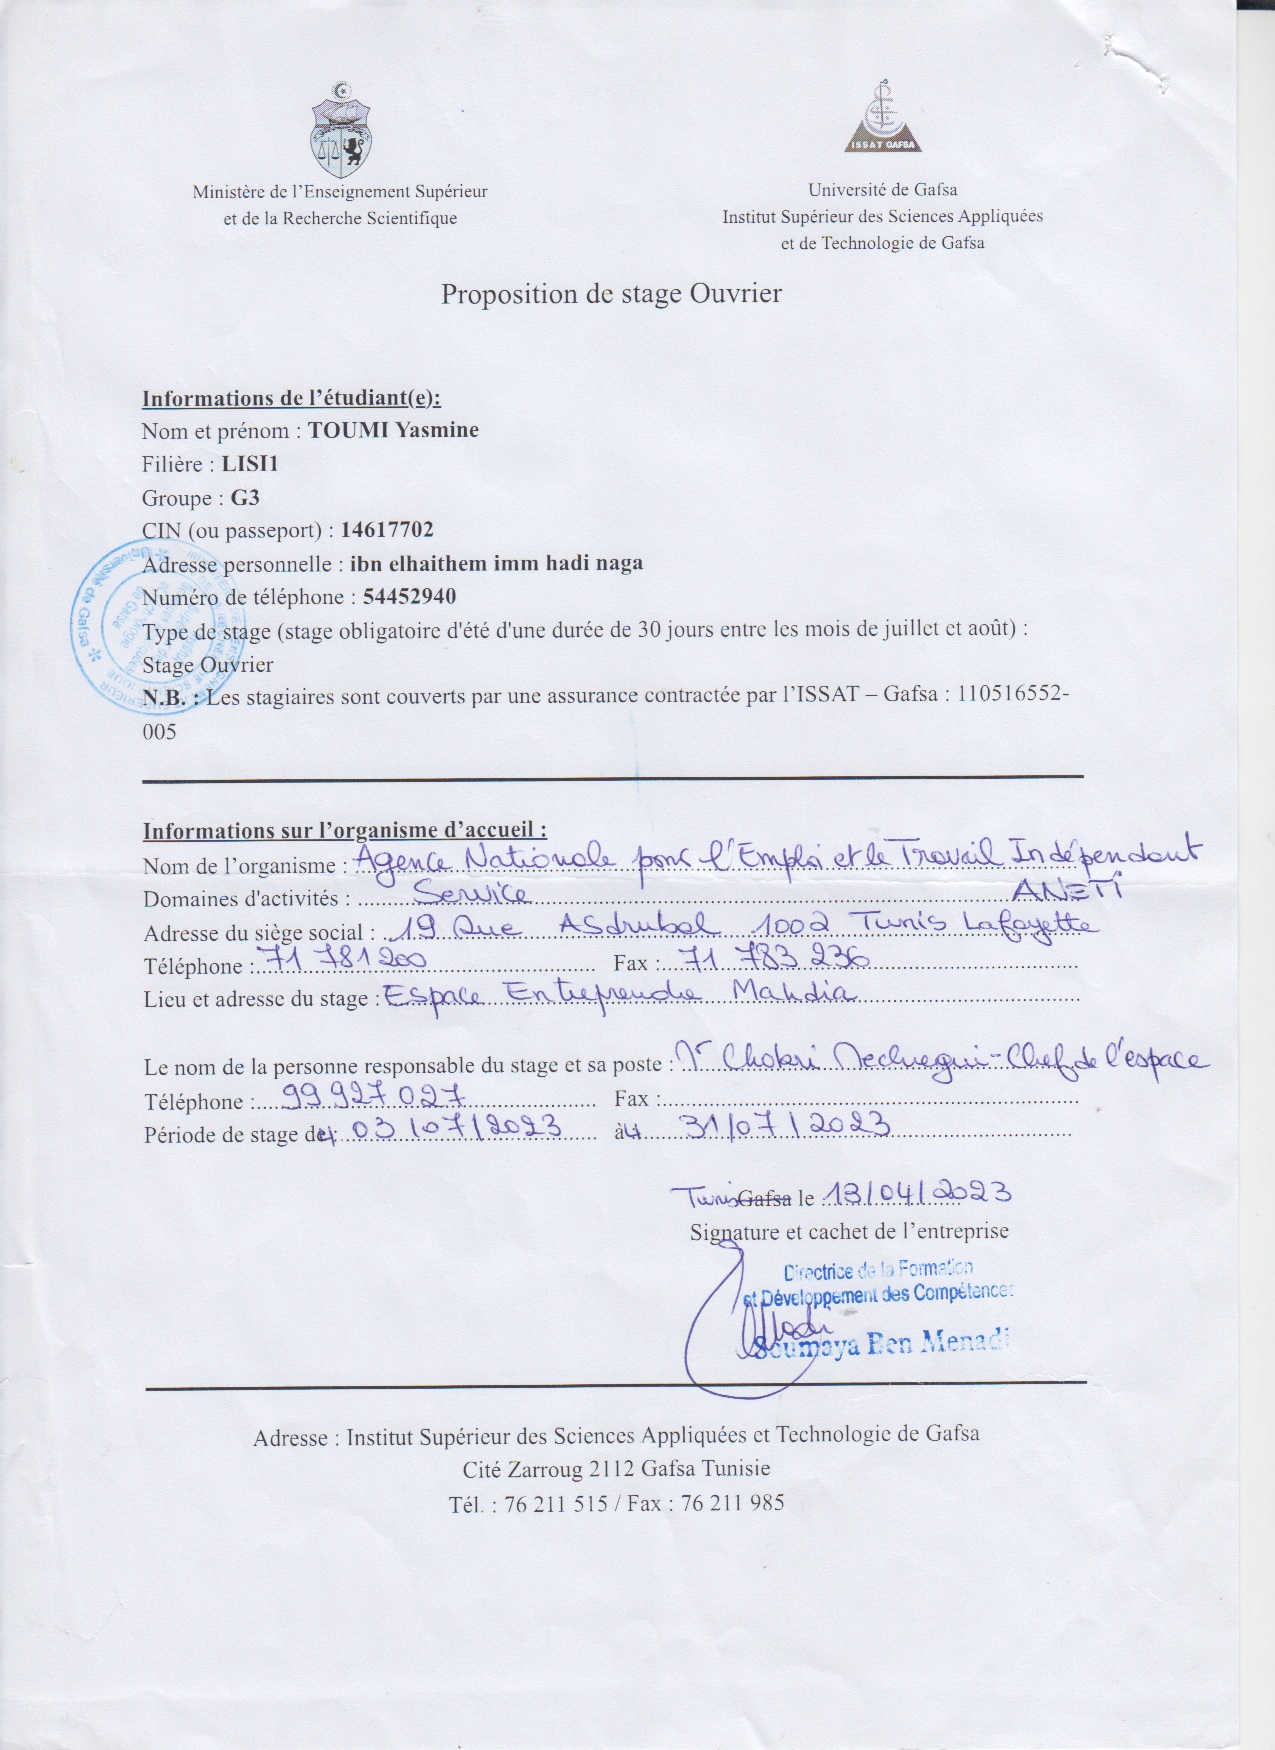 ISSAT GAFSA
Ministère de l'Enseignement Supérieur
et de la Recherche Scientifique
Université de Gafsa
Institut Supérieur des Sciences Appliquées
et de Technologie de Gafsa
Proposition de stage Ouvrier
Informations de l'étudiant(e):
Nom et prénom : TOUMI Yasmine
Filière : LISI1
Groupe : G3
CIN (ou passeport) : 14617702
Adresse personnelle : ibn elhaithem imm hadi naga
Numéro de téléphone : 54452940
Type de stage (stage obligatoire d'été d'une durée de 30 jours entre les mois de juillet et août) :
Stage Ouvrier
N.B. : Les stagiaires sont couverts par une assurance contractée par l'ISSAT – Gafsa : 110516552-
005
Université de Gafsa
Informations sur l'organisme d'accueil :
Nom de l'organisme : Agence Nationale pour l'Emploi et le Travail Indépendant
Domaines d'activités : Service ANETI
Adresse du siège social : 19 Rue ASdrubal 1002 Tunis Lafayette
Téléphone : 71 781 200 Fax : 71 783 236
Lieu et adresse du stage : Espace Entreprendre Mahdia
Le nom de la personne responsable du stage et sa poste : Mr Chokri - Chef de l'espace
Téléphone : 99 927 027 Fax :
Période de stage du : 03/07/2023 au 31/07/2023
Tunis Gafsa le : 13/04/2023
Signature et cachet de l'entreprise
Directrice de la Formation
et Développement des Compétences
Soumaya Ben Menadi
Adresse : Institut Supérieur des Sciences Appliquées et Technologie de Gafsa
Cité Zarroug 2112 Gafsa Tunisie
Tél. : 76 211 515 / Fax : 76 211 985